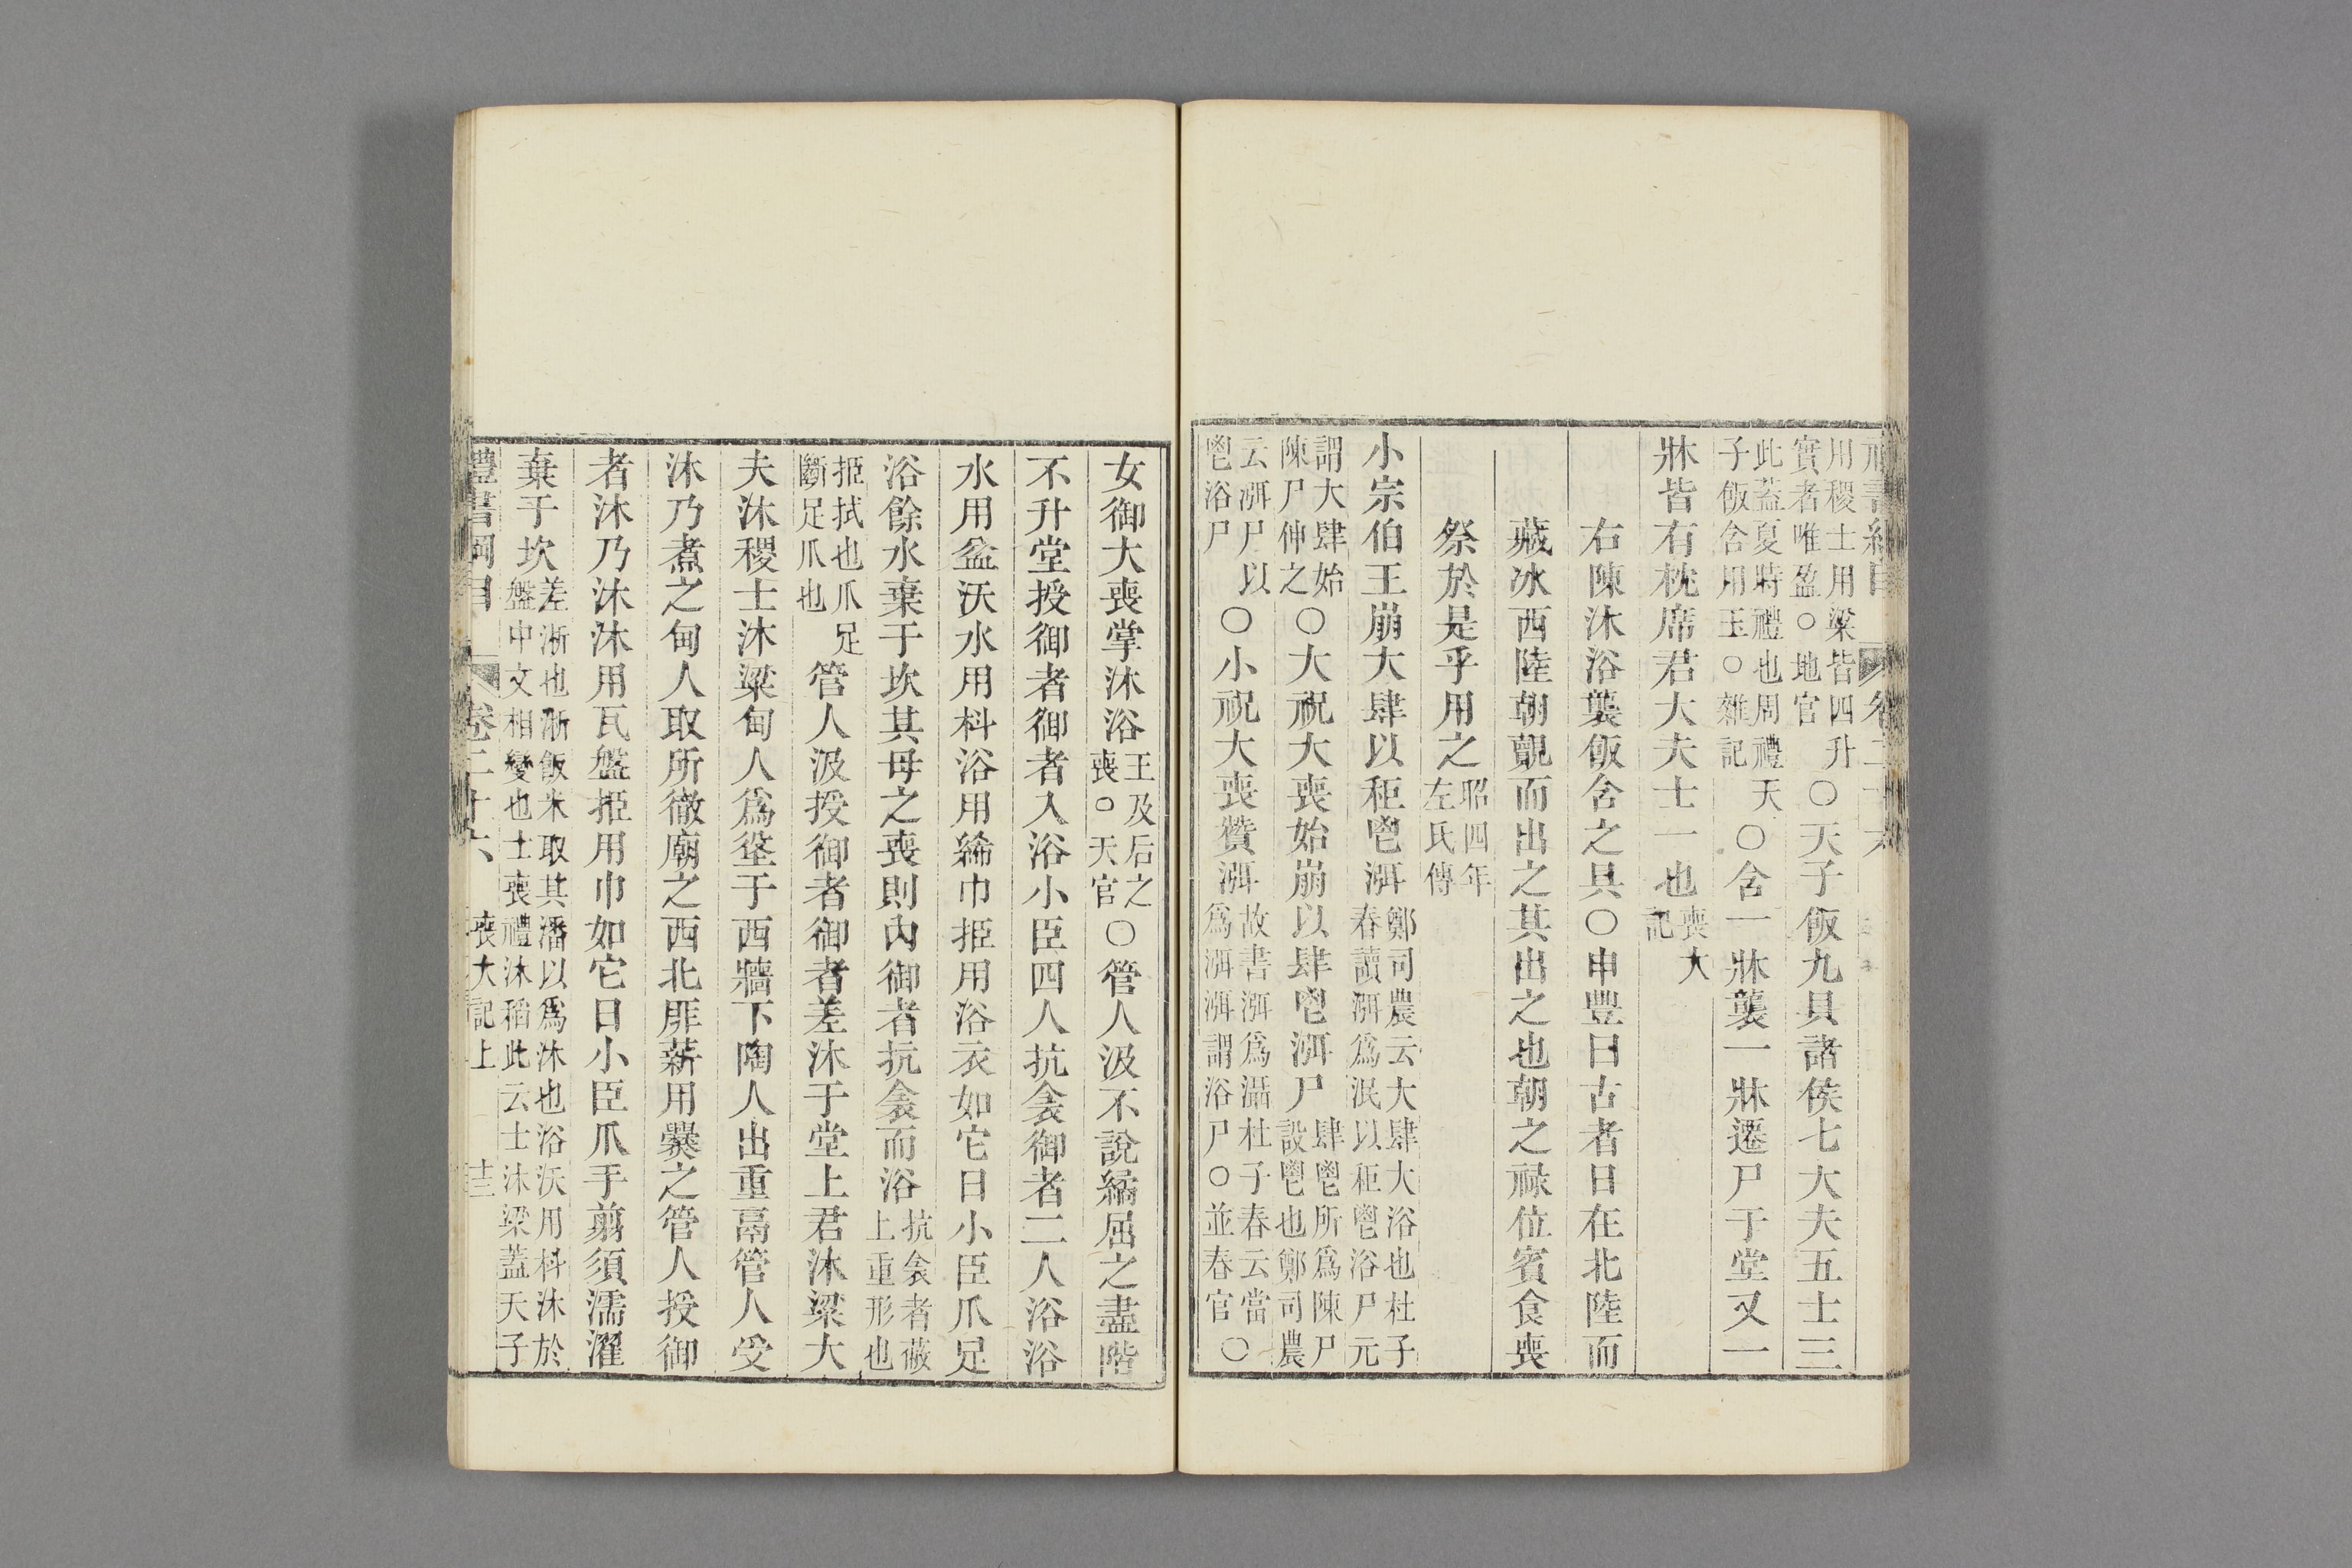 用稷士用粱皆四升
實者唯盈○地官
○天子飯九貝諸侯七大夫五士三
此蓋夏時禮也周禮天
子飯含用玉○雜記
○含一牀襲一牀遷尸于堂又一
牀皆有枕席君大夫士一也
喪大
記
右陳沐浴襲飯含之具○申豐曰古者日在北陸而
藏冰西陸朝覿而出之其出之也朝之祿位賓食喪
祭於是乎用之
昭四年
左氏傳
小宗伯王崩大肆以秬鬯渳
鄭司農云大肆大浴也杜子
春讀渳爲泯以秬鬯浴尸元
謂大肆始
陳尸伸之
○大祝大喪始崩以肆鬯渳尸
肆鬯所爲陳尸
設鬯也鄭司農
云渳尸以
鬯浴尸
○小祝大喪贊渳
故書渳爲攝杜子春云當
爲渳渳謂浴尸○並春官
○
女御大喪掌沐浴
王及后之
喪○天官
○管人汲不說繘屈之盡階
不升堂授御者御者入浴小臣四人抗衾御者二人浴浴
水用盆沃水用枓浴用絺巾挋用浴衣如它日小臣爪足
浴餘水棄于坎其母之喪則內御者抗衾而浴
抗衾者蔽
上重形也
挋拭也爪足
斷足爪也
管人汲授御者御者差沐于堂上君沐粱大
夫沐稷士沐粱甸人爲垼于西牆下陶人出重鬲管人受
沐乃煮之甸人取所徹廟之西北厞薪用爨之管人授御
者沐乃沐沐用瓦盤挋用巾如它日小臣爪手翦須濡濯
棄于坎
差淅也淅飯米取其潘以爲沐也浴沃用枓沐於
盤中文相變也士喪禮沐稻此云士沐粱蓋天子
禮書綱目
卷二十六
喪大記上
十三